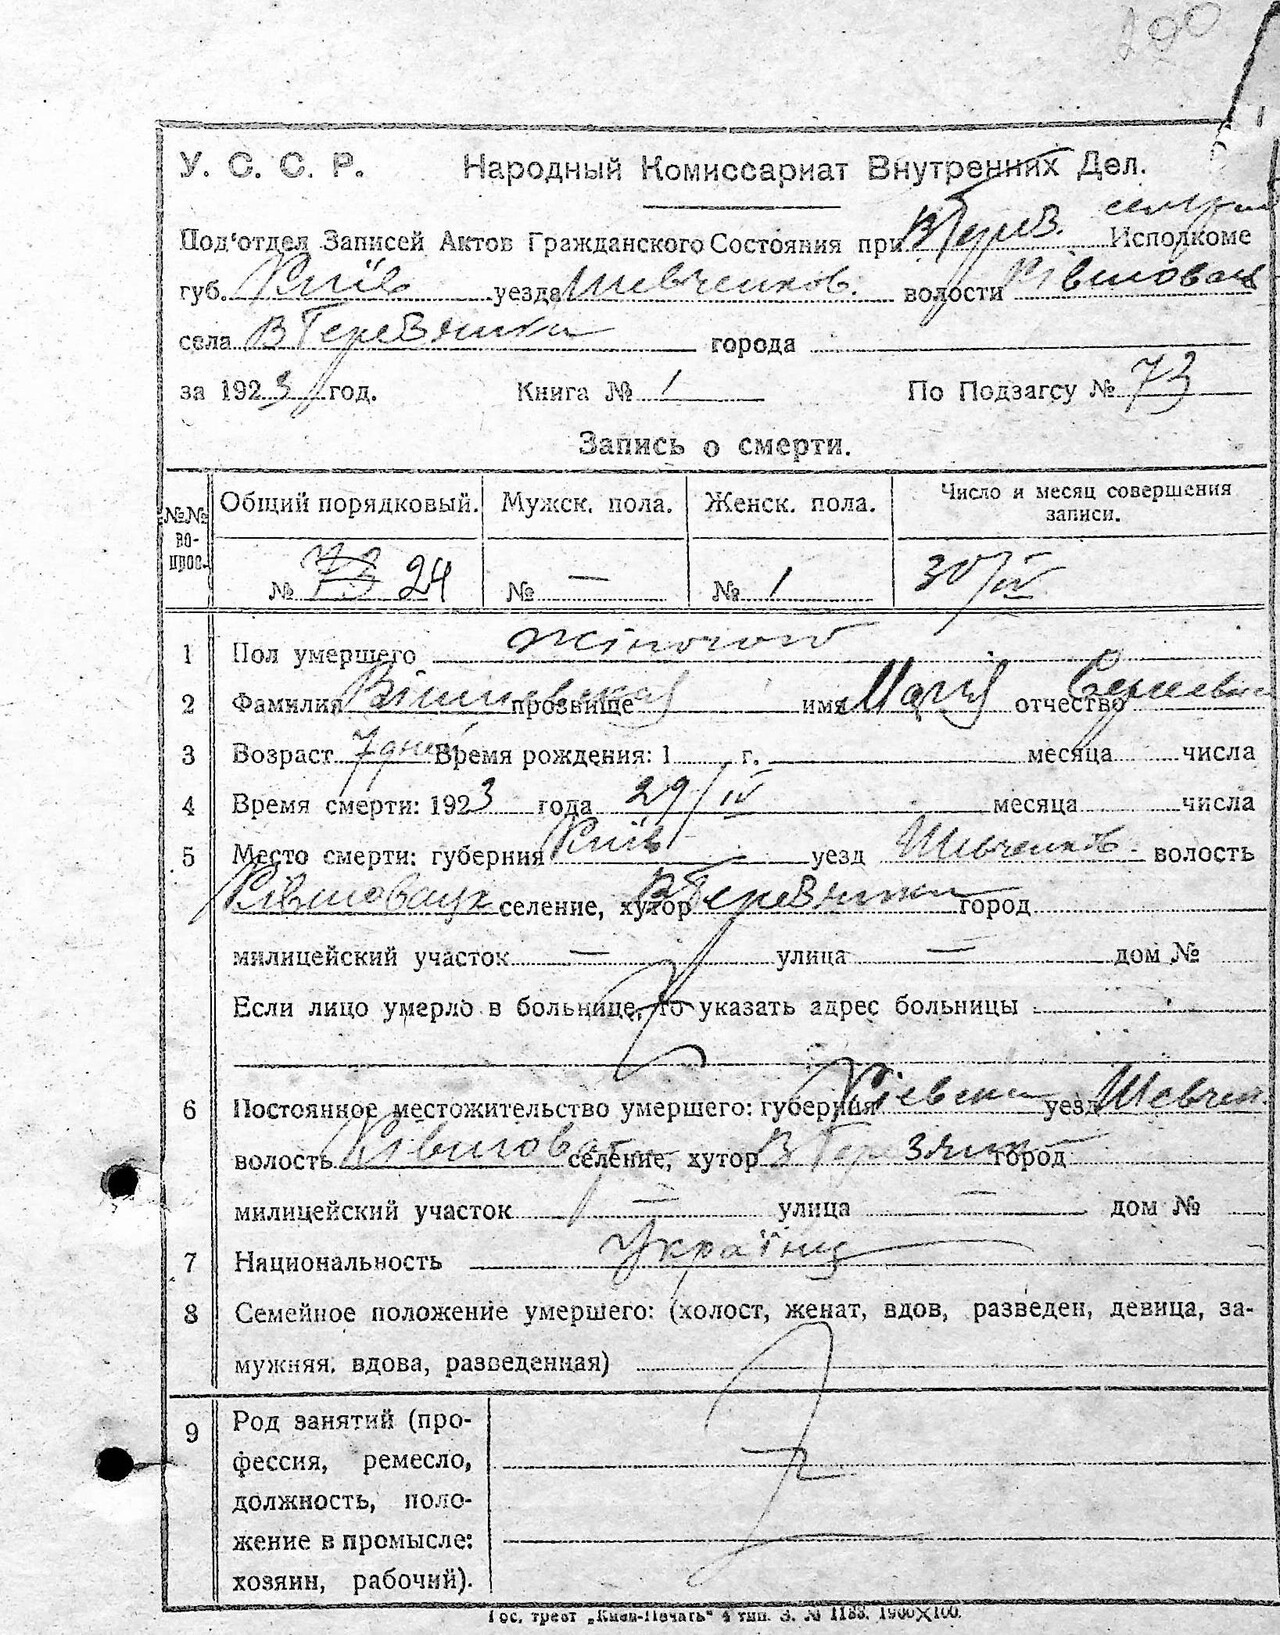 200
У. С. С. Р. Народный Комиссариат Внутренних Дел.
Под'отдел Записей Актов Гражданского Состояния при В Терез. Исполкоме
губ. Київ уезда Шевченков. волости Ківшовацк
села В Терезянки города
за 1923 год. Книга № 1 По Подзагсу № 73
Запись о смерти.
№№ вопрос. Общий порядковый. Мужск. пола. Женск. пола. Число и месяц совершения записи.
№ 73 24 № — № 1 30/IV
1 Пол умершего жіночого
2 Фамилия Вишневская прозвище имя Марія отчество
3 Возраст 7 дней Время рождения: 1 г. месяца числа
4 Время смерти: 1923 года 29/IV месяца числа
5 Место смерти: губерния Київ уезд Шевченков. волость
Ківшовацк селение, хутор В Терезянки город
милицейский участок — улица — дом №
Если лицо умерло в больнице, то указать адрес больницы
6 Постоянное местожительство умершего: губерния Кіевска уезд Шевчен.
волость Ківшоват селение, хутор В Терезянк город
милицейский участок — улица — дом №
7 Национальность Українц
8 Семейное положение умершего: (холост, женат, вдов, разведен, девица, за-
мужняя, вдова, разведенная)
9 Род занятий (про-
фессия, ремесло,
должность, поло-
жение в промысле:
хозяин, рабочий).
Гос. трест „Киев-Печать“ 4 тип. З. № 1183. 1900×100.